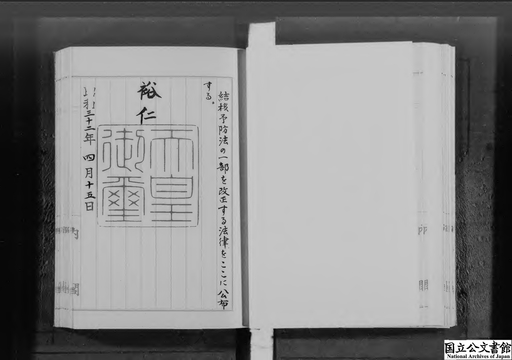 結核予防法の一部を改正する法律をここに公布
する。
裕仁
天皇御璽
三十二年四月十五日
国立公文書館
National Archives of Japan